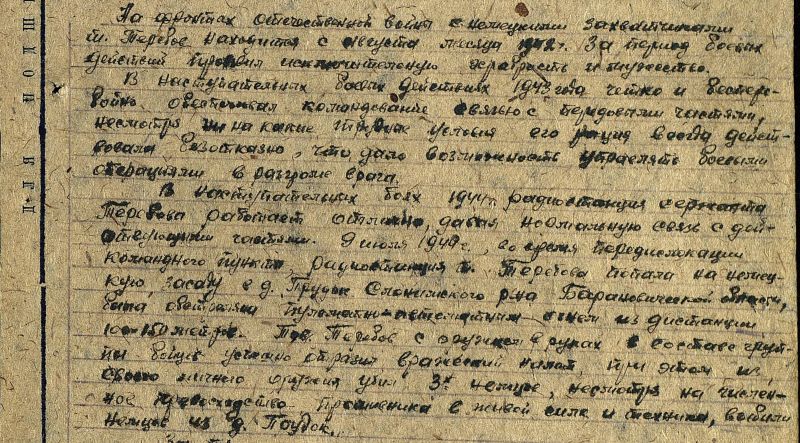 На фронтах отечественной войны с немецкими захватчиками
т. находится с августа месяца 1942 г. За период боевых
действий проявил исключительную храбрость и мужество.
В наступательных боевых действиях 1943 года четко и беспере-
бойно обеспечивал командование связью с передовыми частями,
несмотря ни на какие трудные условия его рация всегда дейст-
вовала безотказно, что дало возможность управлять боевыми
операциями в разгроме врага.
В наступательных боях 1944 г. радиостанция сержанта
работает отлично, давая нормальную связь с дей-
ствующими частями. 9 июля 194 г., во время передислокации
командного пункта, радиостанция т. попала на немец-
кую засаду в д. Слонимского р-на Барановической области,
была обстреляна пулеметно-автоматным огнем из дистанции
100-150 метров. Тов. с оружием в руках в составе груп-
пы бойцов успешно отразил вражеский налет, при этом из
своего личного оружия убил 3х немцев, несмотря на числен-
ное превосходство противника в живой силе и технике, выбили
немцев из д.